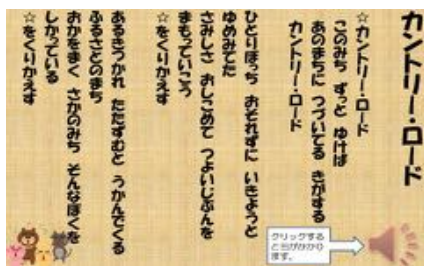 カントリー・ロード
☆カントリー・ロード
このみち ずっと ゆけば
あのまちに つづいてる きがする
カントリー・ロード
ひとりぼっち おそれずに いきようと
ゆめみてた
さみしさ おしこめて つよいじぶんを
まもっていこう
☆をくりかえす
あるきつかれ たたずむと うかんでくる
ふるさとのまち
おかをまく さかのみち そんなぼくを
しかっている
☆をくりかえす
クリックする
と音がかかり
ます。